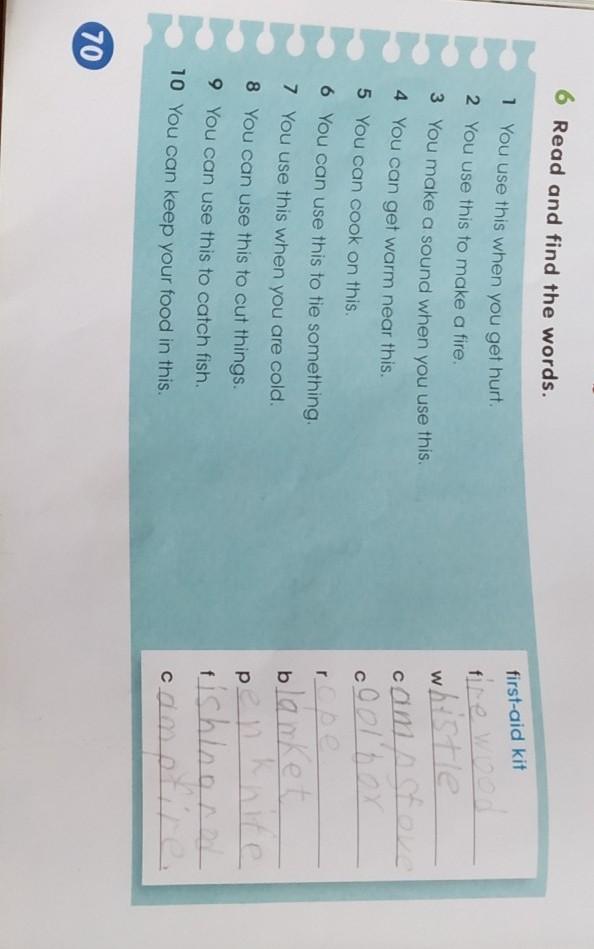 6 Read and find the words.
1 You use this when you get hurt. first-aid kit
2 You use this to make a fire. firewood
3 You make a sound when you use this. whistle
4 You can get warm near this. campstove
5 You can cook on this. coolbox
6 You can use this to tie something. rope
7 You use this when you are cold. blanket
8 You can use this to cut things. penknife
9 You can use this to catch fish. fishing rod
10 You can keep your food in this. campfire.
70